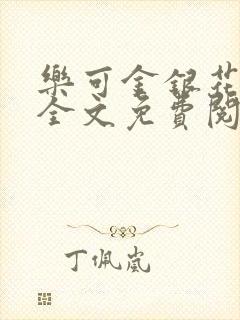 樂可金銀花
全文免費閱
丁佩嵐